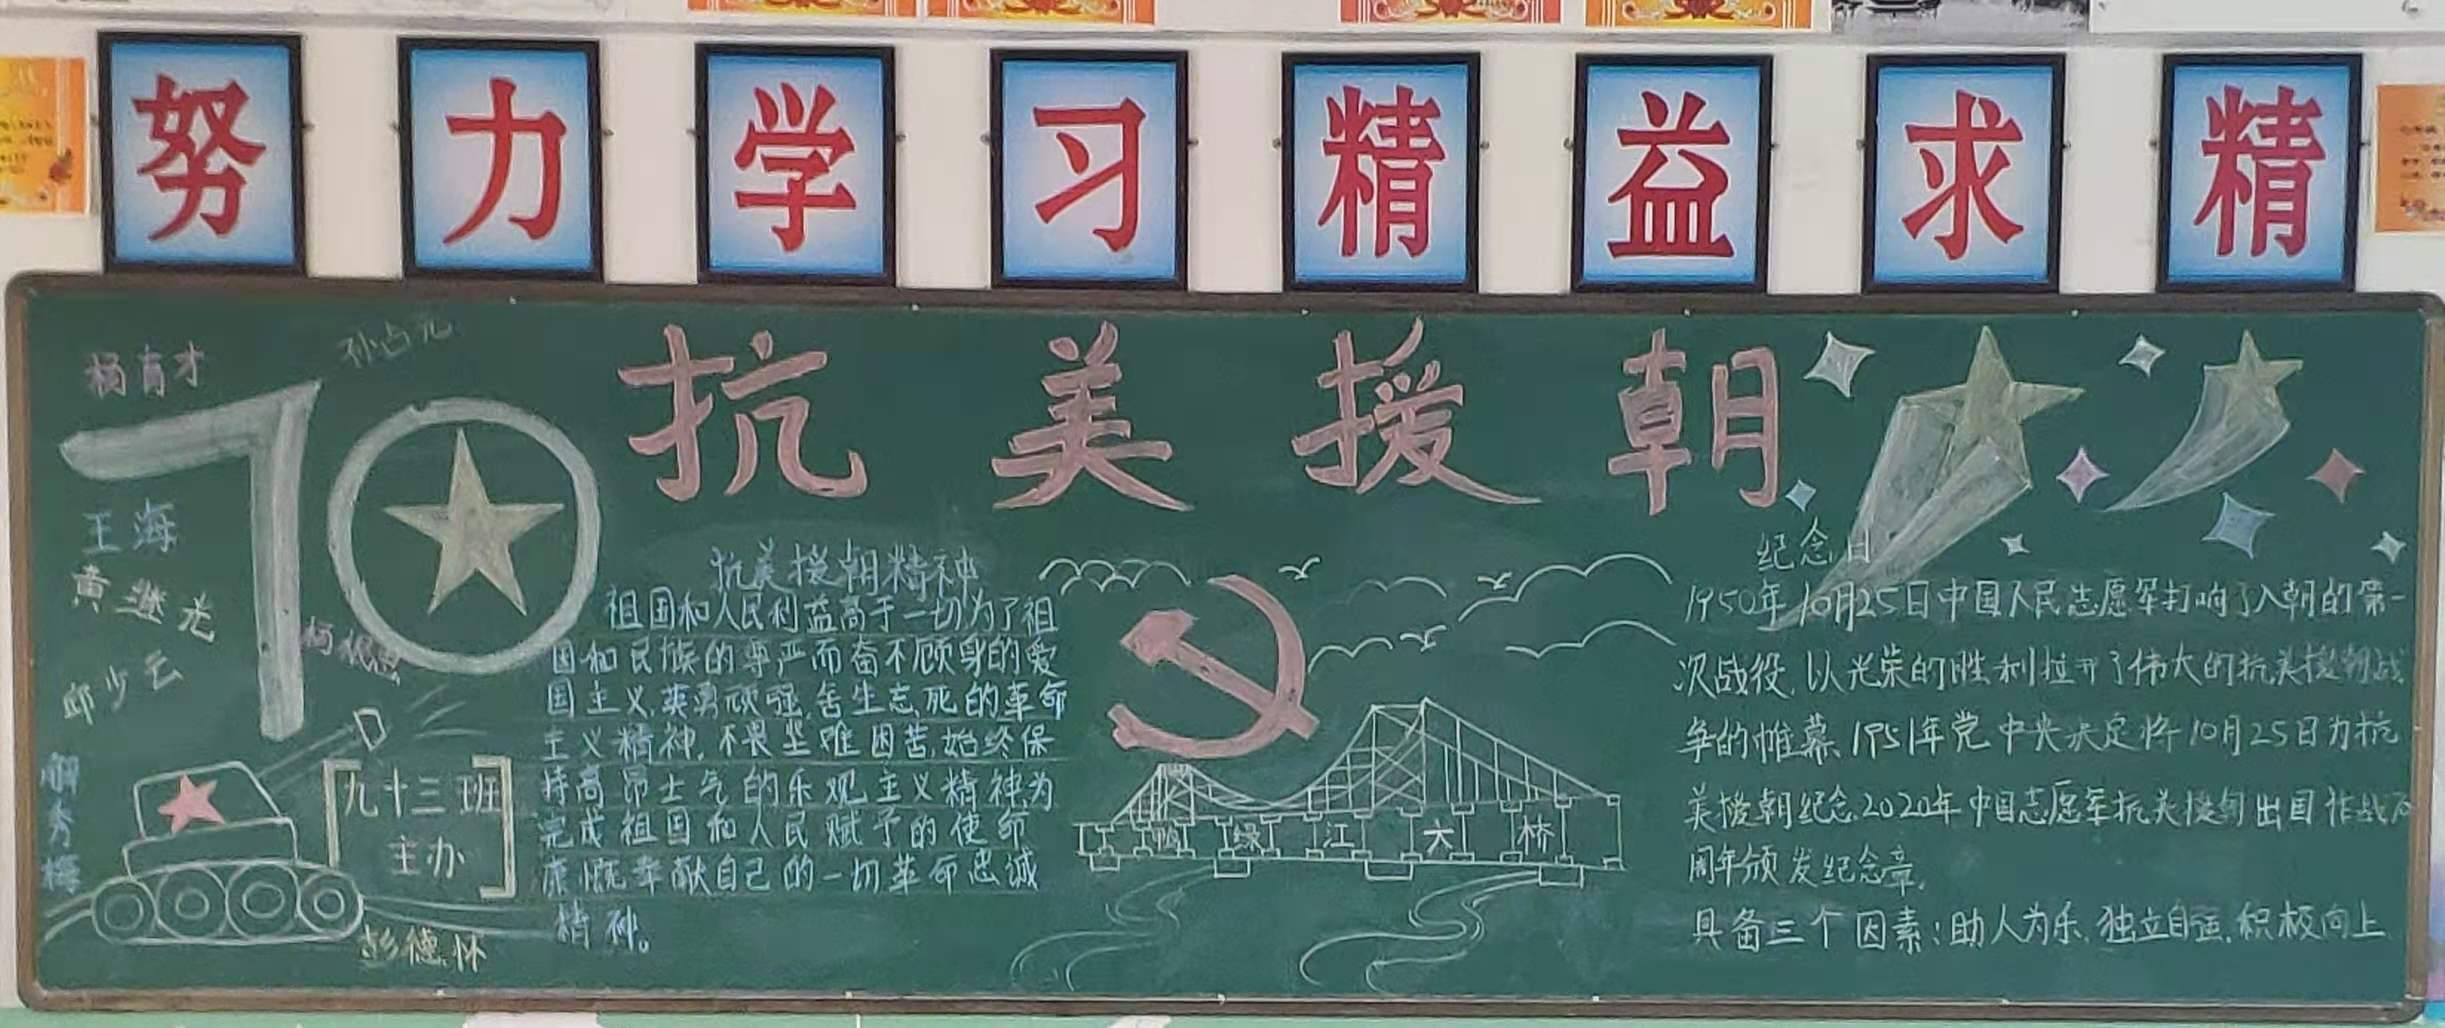 努力学习精益求精
抗美援朝
70
杨育才
孙占元
王海
黄继光
邱少云
杨根思
解秀梅
彭德怀
九十三班
主办
抗美援朝精神
祖国和人民利益高于一切为了祖
国和民族的尊严而奋不顾身的爱
国主义,英勇顽强,舍生忘死的革命
主义精神,不畏坚难困苦,始终保
持高昂士气的乐观主义精神为
完成祖国和人民赋予的使命
康慨奉献自己的一切革命忠诚
精神。
鸭绿江大桥
纪念日
1950年10月25日中国人民志愿军打响了入朝的第一
次战役,以光荣的胜利拉开了伟大的抗美援朝战
争的帷幕,1951年党中央决定将10月25日为抗
美援朝纪念.2020年中国志愿军抗美援朝出国作战70
周年颁发纪念章,
具备三个因素:助人为乐,独立自强,积极向上